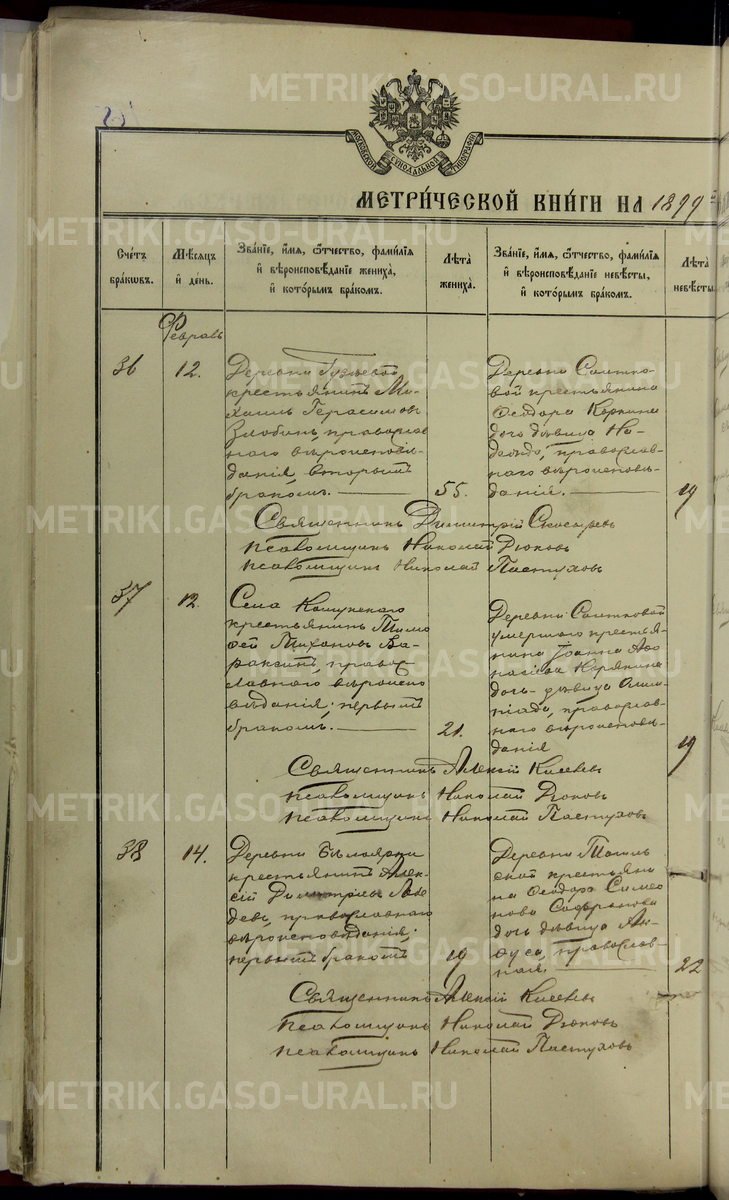 METRIKI.GASO-URAL.RU
МОСКОВСКОЙ СѴНОДАЛЬНОЙ ТИПОГРАФІИ
МЕТРИ́ЧЕСКОЙ КНИ́ГИ НА 1899
Сче́тъ бра́кωвъ.
Мѣ́сяцъ и҆ де́нь.
Зва́нїе, и҆́мя, ѻ҆́тчество, фами́лїя и҆ вѣроисповѣ́данїе жениха̀, и҆ кото́рымъ бра́комъ.
Лѣ́та жениха̀.
Зва́нїе, и҆́мя, ѻ҆́тчество, фами́лїя и҆ вѣроисповѣ́данїе невѣ́сты, и҆ кото́рымъ бра́комъ.
Лѣ́та невѣ́сты
36
12.
Деревни
крестьянинъ Ми-
хаилъ Герасимовъ
Злобинъ, православ
наго вѣроисповѣ-
данія, вторымъ
бракомъ.
55.
Деревни
вой крестьянина
Ѳеодора
дочь дѣвица На-
дежда, православ-
наго вѣроисповѣ-
данія.
19
Священникъ Димитрій
Псаломщикъ Николай Дюковъ
Псаломщикъ Николай Пастуховъ
37
12.
Села
крестьянинъ Тимо
ѳей Тихоновъ Ва-
раксинъ, право-
славнаго вѣроиспо
вѣданія, первымъ
бракомъ.
21.
Деревни
умершаго крестья-
нина Іоанна Аѳа
насьева
дочь дѣвица Олим-
піада, православ-
наго вѣроисповѣ-
данія
19
Священникъ Алексій
Псаломщикъ Николай Дюковъ
Псаломщикъ Николай Пастуховъ
38
14.
Деревни Бѣлоярки
крестьянинъ Алек-
сій Димитріевъ
православнаго
вѣроисповѣданія,
первымъ бракомъ
19
Деревни
ской крестьяни
на Ѳеодора Симео
нова Сафронова
дочь дѣвица Ан-
фуса, православ-
ная.
22
Священникъ Алексій
Псаломщикъ Николай Дюковъ
Псаломщикъ Николай Пастуховъ